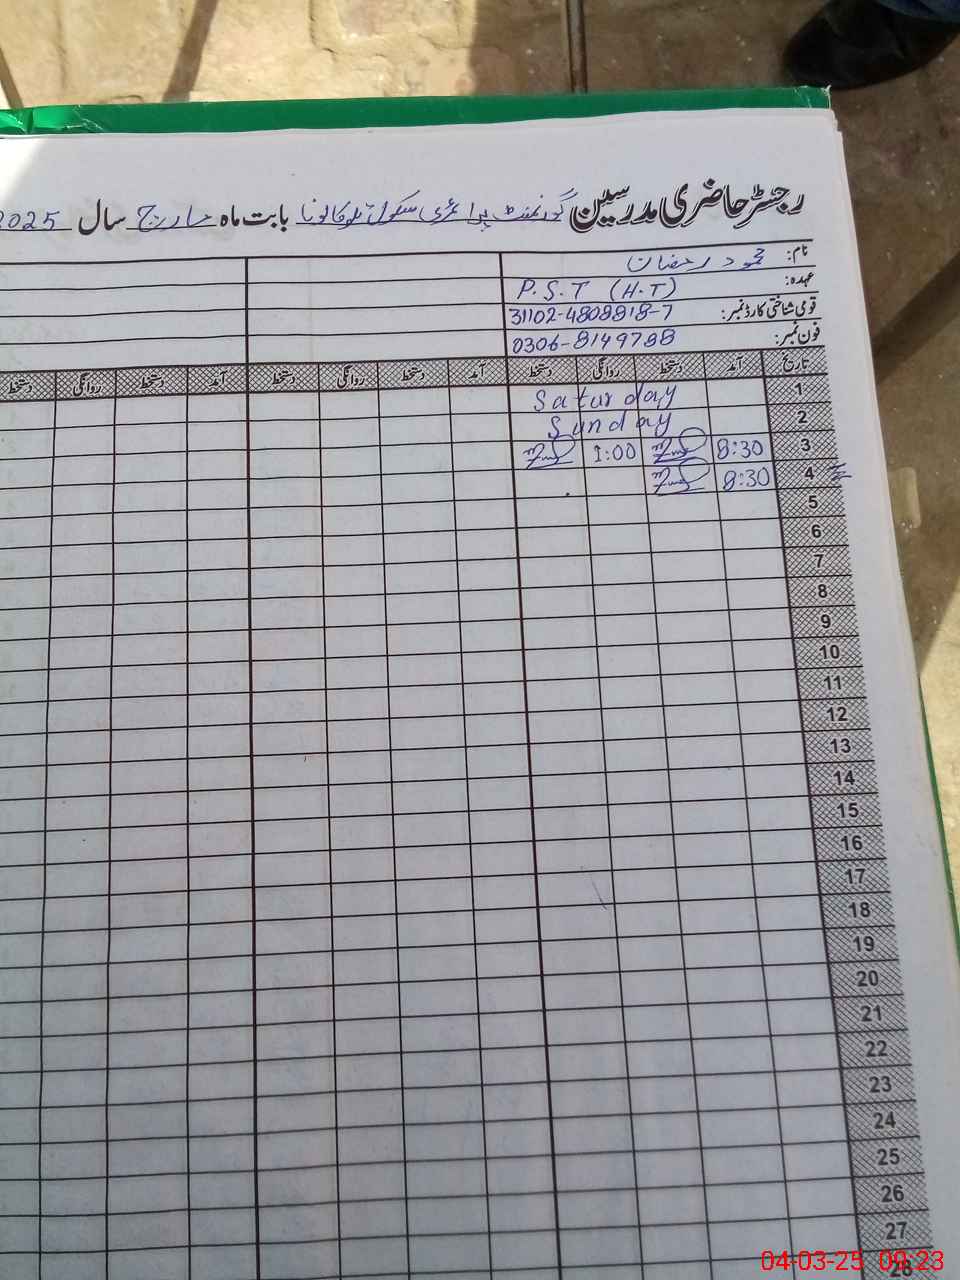 رجسٹر حاضری مدرسین گورنمنٹ پرائمری سکول بابت ماہ مارچ سال 2025
نام: محمود رمضان
عہدہ: P.S.T (H.T)
قومی شناختی کارڈ نمبر: 31102-4808818-7
فون نمبر: 0306-8149788
تاریخ آمد دستخط روانگی دستخط آمد دستخط روانگی دستخط آمد دستخط روانگی دستخط
1 Saturday
2 Sunday
3 8:30 1:00
4 8:30
5
6
7
8
9
10
11
12
13
14
15
16
17
18
19
20
21
22
23
24
25
26
27
28
04-03-25 09:23